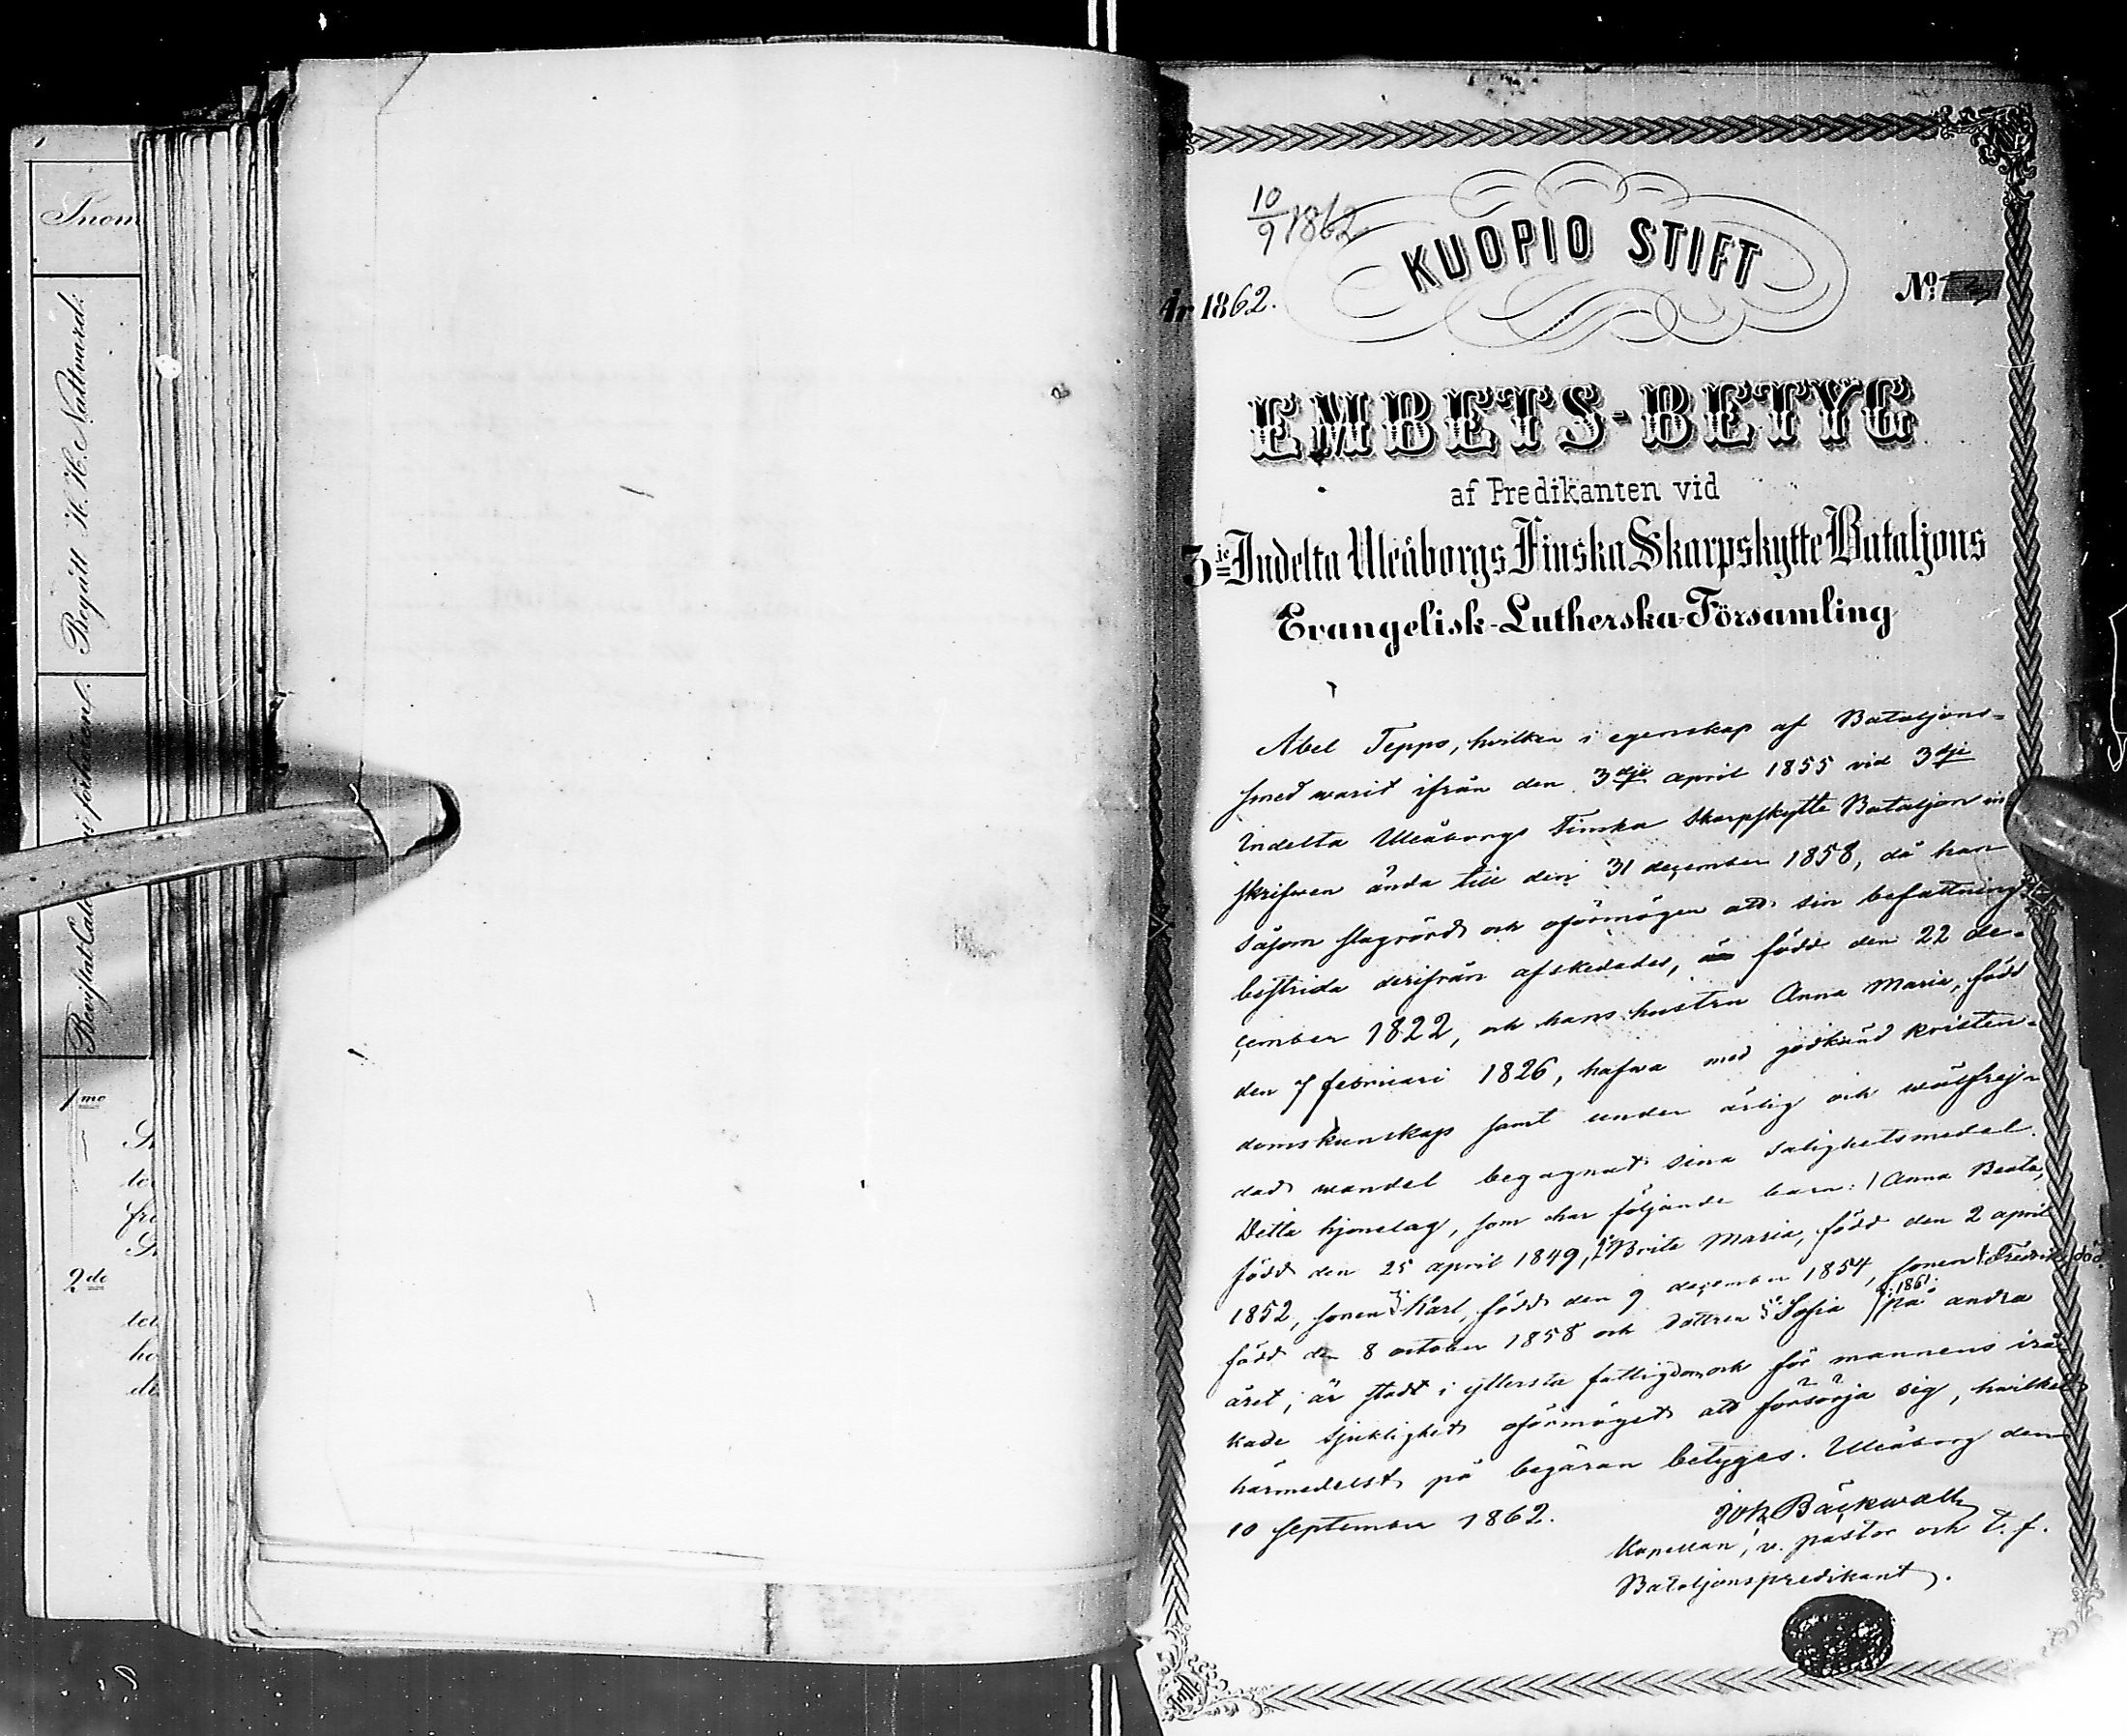 Inom
Begått H. H. Nattvard.
förhören.
1mo
2do
10/9 1862
KUOPIO STIFT
År 1862.
No:
EMBETS-BETYG
af Predikanten vid
3je Indelta Uleåborgs Finska Skarpskytte Bataljons
Evangelisk-Lutherska-Församling
Abel Teppo, hvilken i egenskap af Bataljons-
smed warit ifrån den 3dje april 1855 vid 3dje
Indelta Uleåborgs Finska Skarpskytte Bataljon in-
skrifwen ända till den 31 december 1858, då han
såsom slagrörd och oförmögen att sin befattning
bestrida derifrån afskedades, är född den 22 de-
cember 1822, och hans hustru Anna Maria, född
den 7 februari 1826, hafwa med godkänd kristen-
domskunskap samt under ärlig och wälfrej-
dad wandel begagnat sina salighetsmedel.
Detta hjonelag, som har följande barn: 1 Anna Beata,
född den 25 april 1849, 2 Brita Maria, född den 2 april
1852, sonen 3 Karl, född den 9 december 1854, sonen 4 Fredrik, död 1861.
född den 8 october 1858 och dottren 5 Sofia på andra
året, är stadt i yttersta fattigdom och för mannens irå-
kade sjuklighet oförmöget att försörja sig, hvilket
härmedelst på begäran betyges. Uleåborg den
10 september 1862.
Joh. Bäckwall
Kapellan, v. pastor och t. f.
Bataljonspredikant.